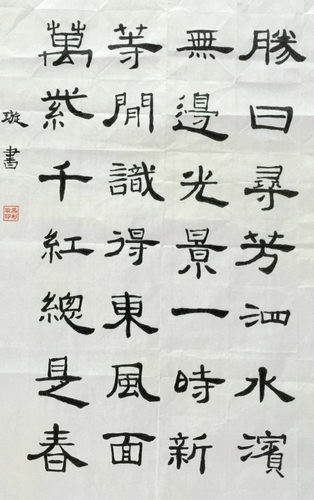 勝日尋芳泗水濱
無邊光景一時新
等閒識得東風面
萬紫千紅總是春
璇書